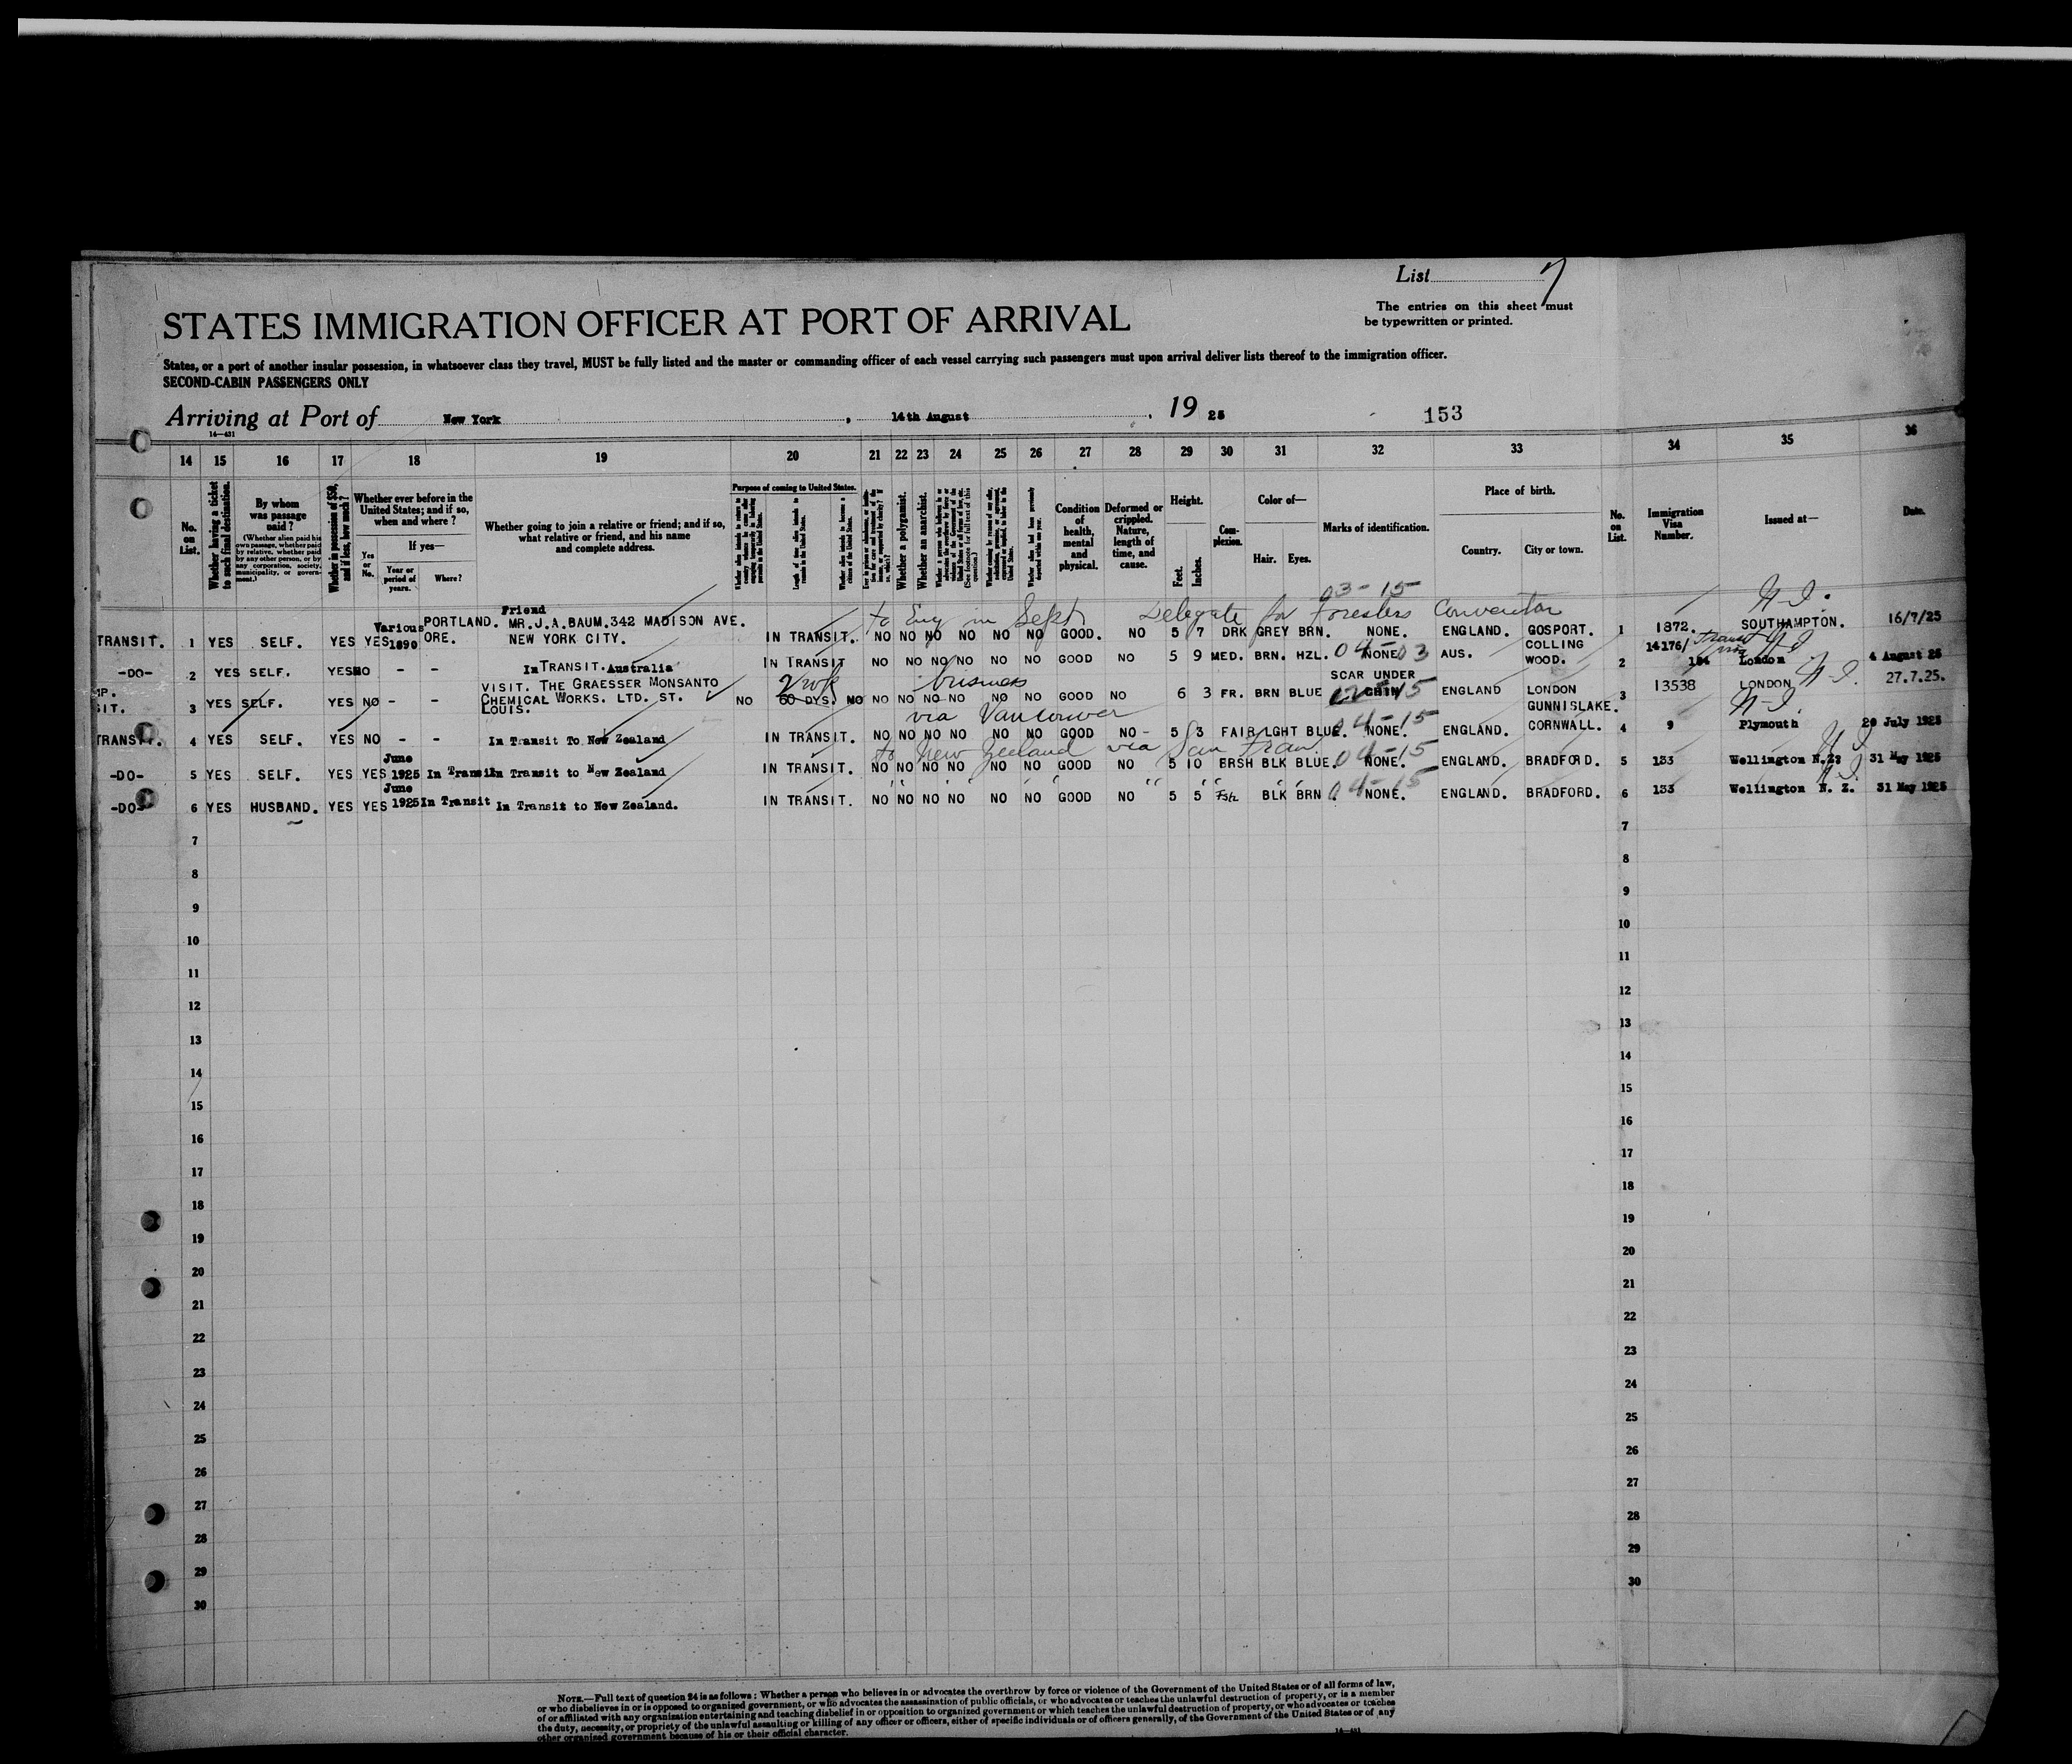 List 7
The entries on this sheet must
be typewritten or printed.
STATES IMMIGRATION OFFICER AT PORT OF ARRIVAL
States, or a port of another insular possession, in whatsoever class they travel, MUST be fully listed and the master or commanding officer of each vessel carrying such passengers must upon arrival deliver lists thereof to the immigration officer.
SECOND-CABIN PASSENGERS ONLY
Arriving at Port of New York, 14th August, 19 25 153
14-431
14 15 16 17 18 19 20 21 22 23 24 25 26 27 28 29 30 31 32 33 34 35 36
No. on List.
Whether having a ticket to such final destination.
By whom was passage paid?
(Whether alien paid his own passage, whether paid by relative, whether paid by any other person, or by any corporation, society, municipality, or government.)
Whether in possession of $50, and if less, how much?
Whether ever before in the United States; and if so, when and where?
If yes—
Yes or No.
Year or period of years.
Where?
Whether going to join a relative or friend; and if so, what relative or friend, and his name and complete address.
Purpose of coming to United States.
Length of time alien intends to remain in the United States.
Whether alien intends to become a citizen of the United States.
Whether a polygamist.
Whether an anarchist.
Condition of health, mental and physical.
Deformed or crippled. Nature, length of time, and cause.
Height.
Feet. Inches.
Complexion.
Color of—
Hair. Eyes.
Marks of identification.
Place of birth.
Country. City or town.
No. on List.
Immigration Visa Number.
Issued at—
Date.
03-15
to Eng in Sept Delegate for Foresters Convention N.I.
TRANSIT. 1 YES SELF. YES YES Various 1890 PORTLAND. ORE. Friend MR.J.A.BAUM.342 MADISON AVE. NEW YORK CITY. IN TRANSIT. NO NO NO NO NO NO GOOD. NO 5 7 DRK GREY BRN. NONE. ENGLAND. GOSPORT. 1 1872. SOUTHAMPTON. 16/7/25
-DO- 2 YES SELF. YES NO - - In TRANSIT.Australia IN TRANSIT NO NO NO NO NO NO GOOD NO 5 9 MED. BRN. HZL. 04-03 NONE AUS. COLLING WOOD. 2 14176/ 184 London 4 August 25
2 wk business
SIT. 3 YES SELF. YES NO - - VISIT. THE GRAESSER MONSANTO CHEMICAL WORKS. LTD. ST. LOUIS. NO 60 DYS. NO NO NO NO NO NO NO GOOD NO 6 3 FR. BRN BLUE SCAR UNDER CHIN ENGLAND LONDON 3 13538 LONDON N.I. 27.7.25.
via Vancouver
TRANSIT. 4 YES SELF. YES NO - - In Transit To New Zealand IN TRANSIT. NO NO NO NO NO NO GOOD NO - 5 3 FAIR LGHT BLUE. 04-15 NONE. ENGLAND. GUNNISLAKE. CORNWALL. 4 9 Plymouth N.I. 20 July 1925
to New Zealand via San Fran.
-DO- 5 YES SELF. YES YES June 1925 In Transit In Transit to New Zealand IN TRANSIT. NO NO NO NO NO NO GOOD NO 5 10 BRSH BLK BLUE. 04-15 NONE. ENGLAND. BRADFORD. 5 133 Wellington N.Z. 31 May 1925
-DO- 6 YES HUSBAND. YES YES June 1925 In Transit In Transit to New Zealand. IN TRANSIT. NO NO NO NO NO NO GOOD NO 5 5 Fsh BLK BRN. 04-15 NONE. ENGLAND. BRADFORD. 6 133 Wellington N. Z. 31 May 1925
7 7
8 8
9 9
10 10
11 11
12 12
13 13
14 14
15 15
16 16
17 17
18 18
19 19
20 20
21 21
22 22
23 23
24 24
25 25
26 26
27 27
28 28
29 29
30 30
NOTE.—Full text of question 24 is as follows: Whether a person who believes in or advocates the overthrow by force or violence of the Government of the United States or of all forms of law,
or who disbelieves in or is opposed to organized government, or who advocates the assassination of public officials, or who advocates or teaches the unlawful destruction of property, or is a member
of or affiliated with any organization entertaining and teaching disbelief in or opposition to organized government or which teaches the unlawful destruction of property, or who advocates or teaches
the duty, necessity, or propriety of the unlawful assaulting or killing of any officer or officers, either of specific individuals or of officers generally, of the Government of the United States or of any
other organized government because of his or their official character.
14-431